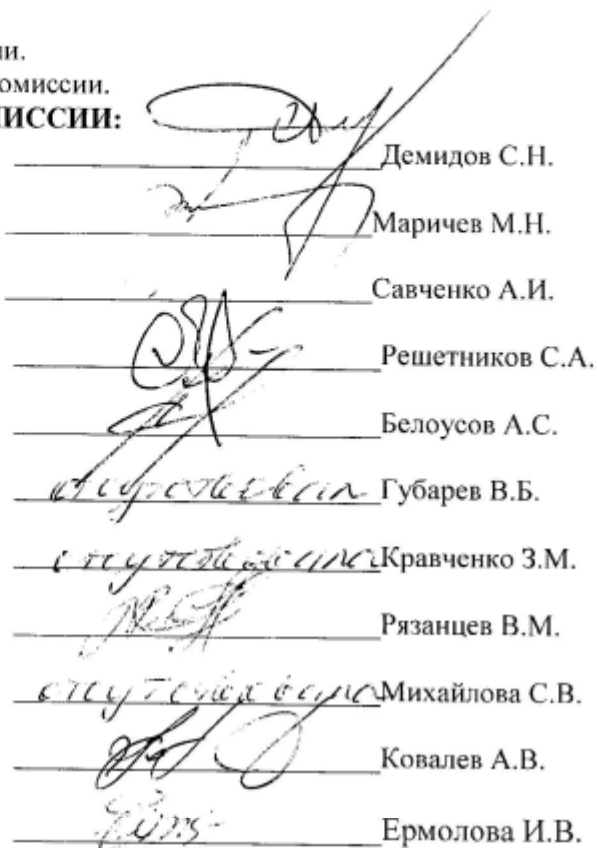 ии.
омиссии.
ИИССИИ:
Демидов С.Н.
Маричев М.Н.
Савченко А.И.
Решетников С.А.
Белоусов А.С.
отсутствовал Губарев В.Б.
отсутствовала Кравченко З.М.
Рязанцев В.М.
отсутствовала Михайлова С.В.
Ковалев А.В.
Ермолова И.В.